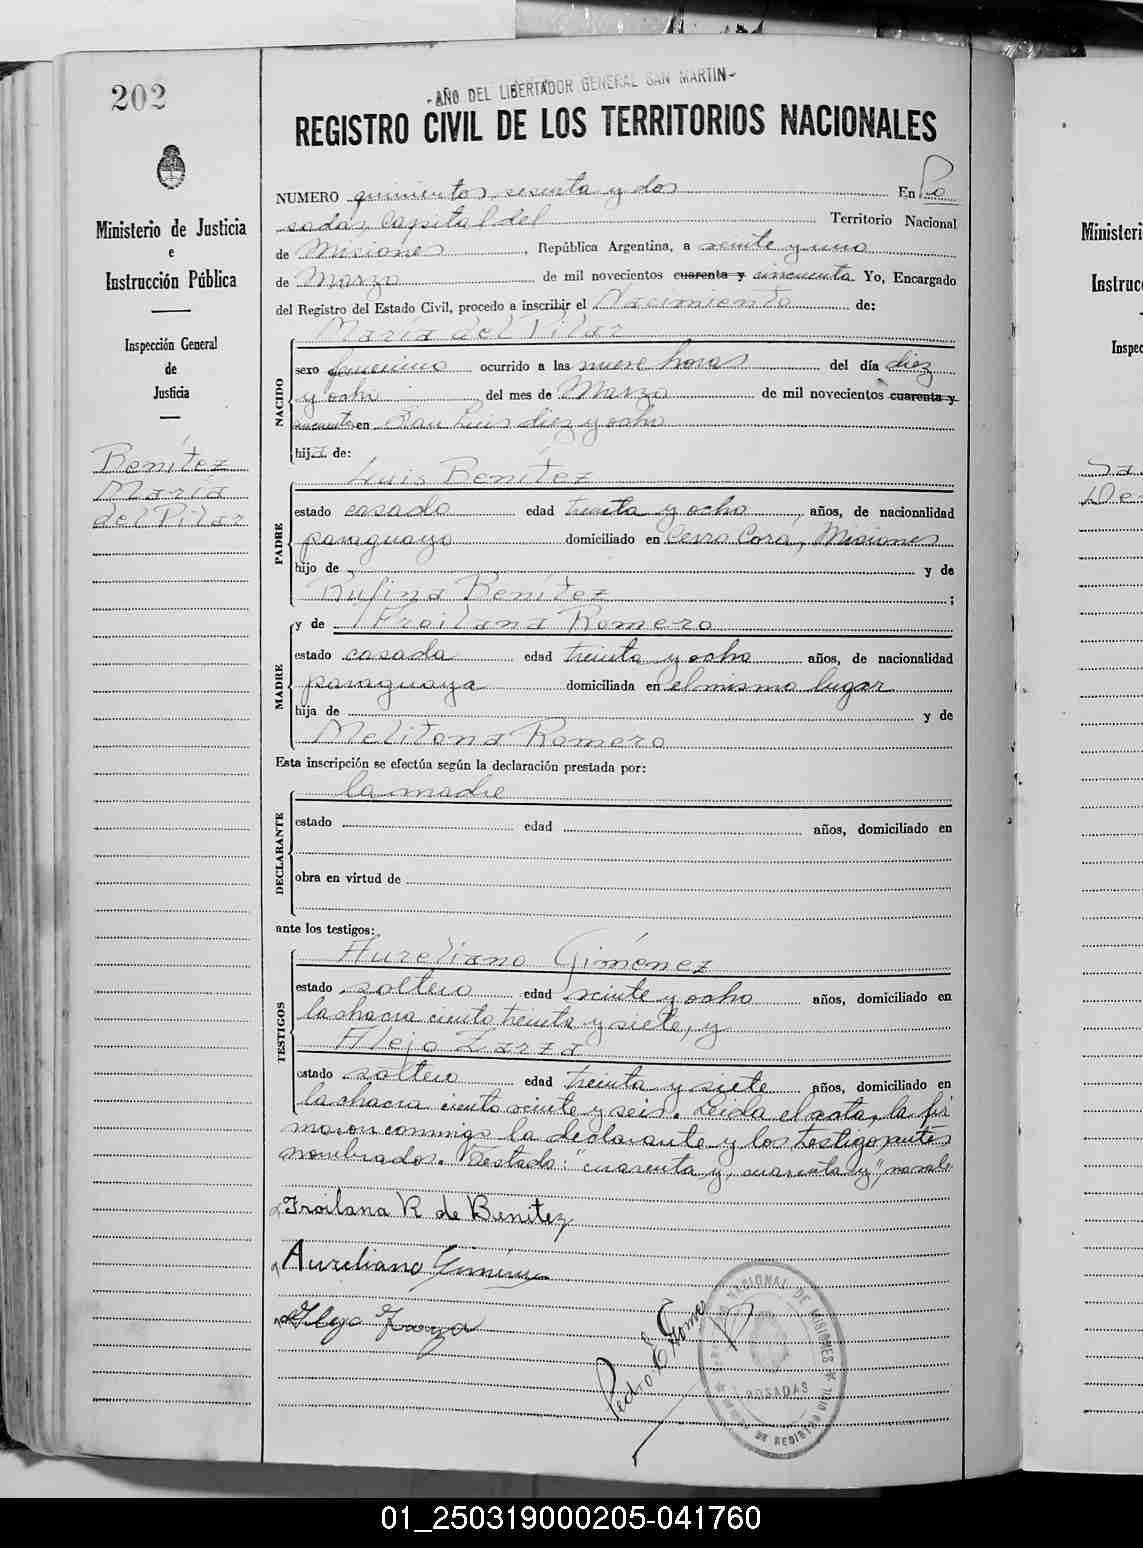 202
-AÑO DEL LIBERTADOR GENERAL SAN MARTIN-
REGISTRO CIVIL DE LOS TERRITORIOS NACIONALES
Ministerio de Justicia
e
Instrucción Pública
Inspección General
de
Justicia
Benítez
María
del Pilar
NUMERO quinientos sesenta y dos En Po
sadas, Capital del Territorio Nacional
de Misiones, República Argentina, a veinte y uno
de Marzo de mil novecientos cuarenta y cincuenta Yo, Encargado
del Registro del Estado Civil, procedo a inscribir el Nacimiento de:
María del Pilar
NACIDO
sexo femenino ocurrido a las nueve horas del día diez
y ocho del mes de Marzo de mil novecientos cuarenta y
cincuenta en San Luis diez y ocho
hija de:
Luis Benítez
PADRE
estado casado edad treinta y ocho años, de nacionalidad
paraguayo domiciliado en Cerro Corá, Misiones
hijo de y de
Rufina Benítez;
y de Froilana Romero
MADRE
estado casada edad treinta y ocho años, de nacionalidad
paraguaya domiciliada en el mismo lugar
hija de y de
Melitona Romero
Esta inscripción se efectúa según la declaración prestada por:
la madre
DECLARANTE
estado edad años, domiciliado en
obra en virtud de
ante los testigos:
Aureliano Giménez
TESTIGOS
estado soltero edad veinte y ocho años, domiciliado en
la chacra ciento treinta y siete, y
Alejo Zarza
estado soltero edad treinta y siete años, domiciliado en
la chacra ciento veinte y seis. Leida el acta, la fir
maron conmigo la declarante y los testigos antes
nombrados. Testado: "cuarenta y, cuarenta y", no vale
Froilana R de Benitez
Aureliano Gimenez
Alejo Zarza
Pedro E. Gomez
NACIONAL DE MISIONES
POSADAS
DE REGISTRO CIVIL
Ministeri
Instruc
Inspec
Sa
De
01_250319000205-041760